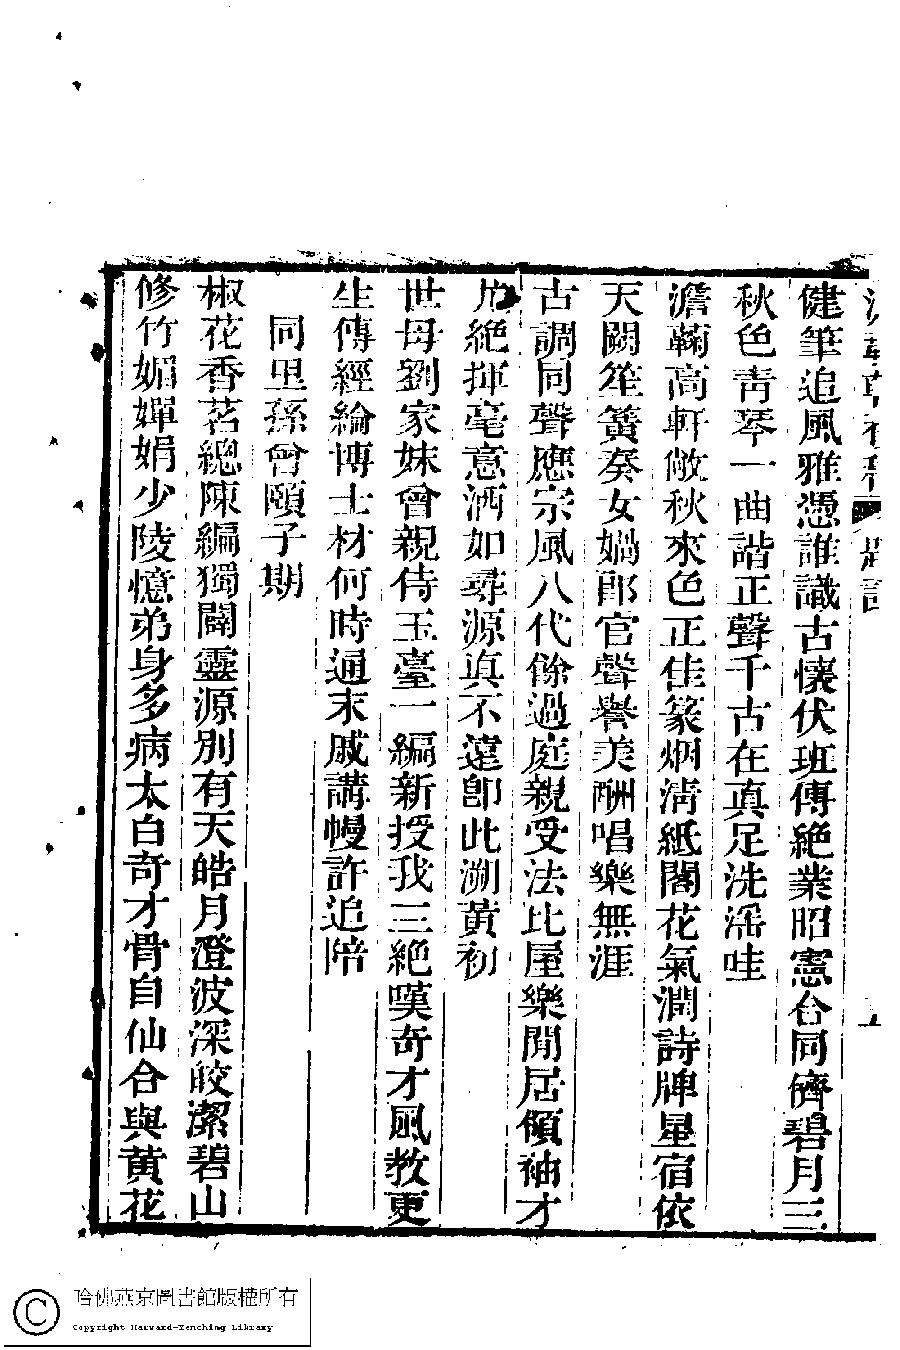 題詞
健筆追風雅憑誰識古懷伏班傳絕業昭憲台同儕碧月三
秋色靑琴一曲諧正聲千古在眞足洗淫哇
澹蘜高軒敞秋來色正佳篆烟淸紙閣花氣潤詩牌星宿依
天闕笙簧奏女媧郎官聲譽美酬唱樂無涯
古調同聲應宗風八代餘過庭親受法比屋樂閒居傾袖才
尤絕揮毫意洒如尋源眞不遠卽此溯黃初
世母劉家妹曾親侍玉臺一編新授我三絕嘆奇才風敎更
生傳經綸博士材何時通末戚講幔許追陪
同里孫曾頤子期
椒花香茗總陳編獨闢靈源別有天皓月澄波深皎潔碧山
修竹媚嬋娟少陵憶弟身多病太白奇才骨自仙合與黃花
哈佛燕京圖書館版權所有
Copyright Harvard-Yenching Library